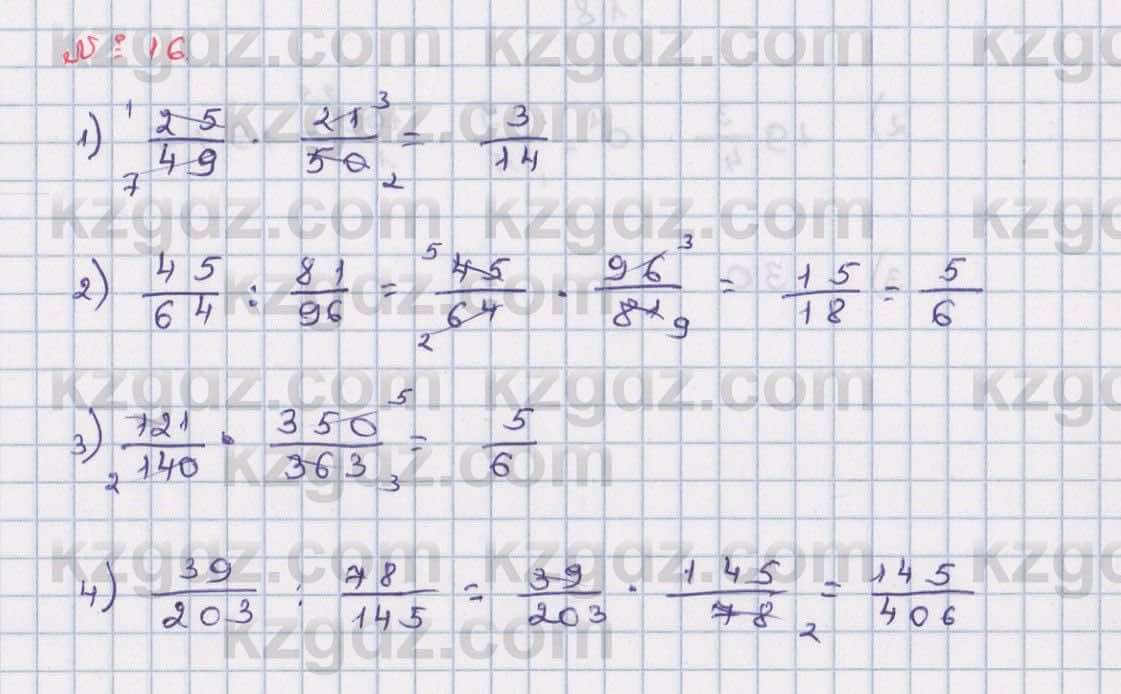 № 16
1) 25/49 · 21/50 = 3/14
2) 45/64 : 81/96 = 45/64 · 96/81 = 15/18 = 5/6
3) 121/140 · 350/363 = 5/6
4) 39/203 : 78/145 = 39/203 · 145/78 = 145/406
kzgdz.com